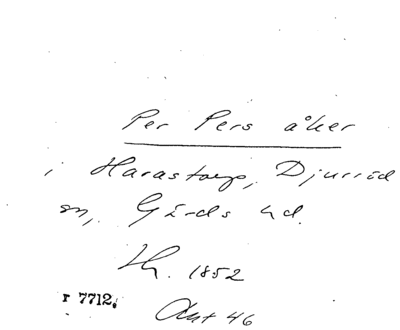 Per Pers åker
i Harastorp, Djurröd
sn, Gärds hd.
Th. 1852
r 7712.
Akt 46